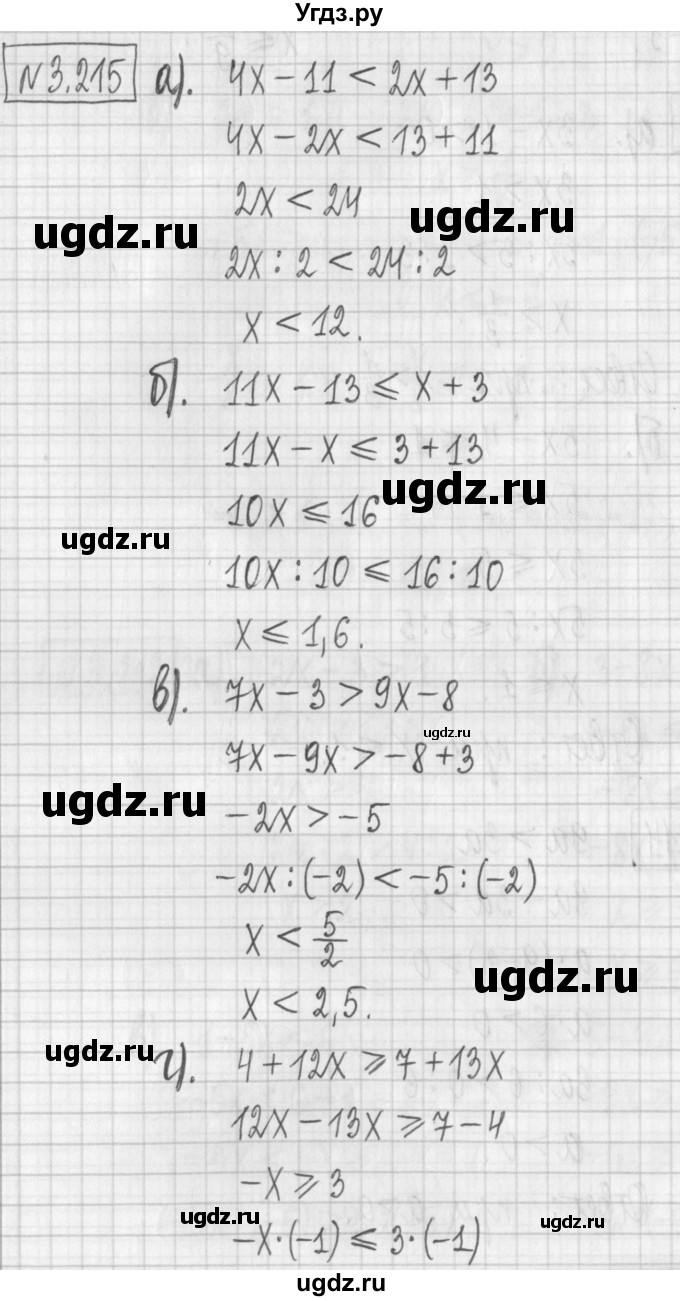 Угдз.ру
№3.215 а). 4x - 11 < 2x + 13
4x - 2x < 13 + 11
2x < 24
ugdz.ru ugdz.ru
2x : 2 < 24 : 2
x < 12.
б). 11x - 13 ⩽ x + 3
11x - x ⩽ 3 + 13
ugdz.ru
10x ⩽ 16
ugdz.ru
10x : 10 ⩽ 16 : 10
x ⩽ 1,6.
в). 7x - 3 > 9x - 8
ugdz.ru
7x - 9x > -8 + 3
ugdz.ru
-2x > -5
-2x : (-2) < -5 : (-2)
x < 5/2
ugdz.ru
x < 2,5.
ugdz.ru
г). 4 + 12x ⩾ 7 + 13x
12x - 13x ⩾ 7 - 4
-x ⩾ 3
ugdz.ru ugdz.ru
-x · (-1) ⩽ 3 · (-1)
ugdz.ru